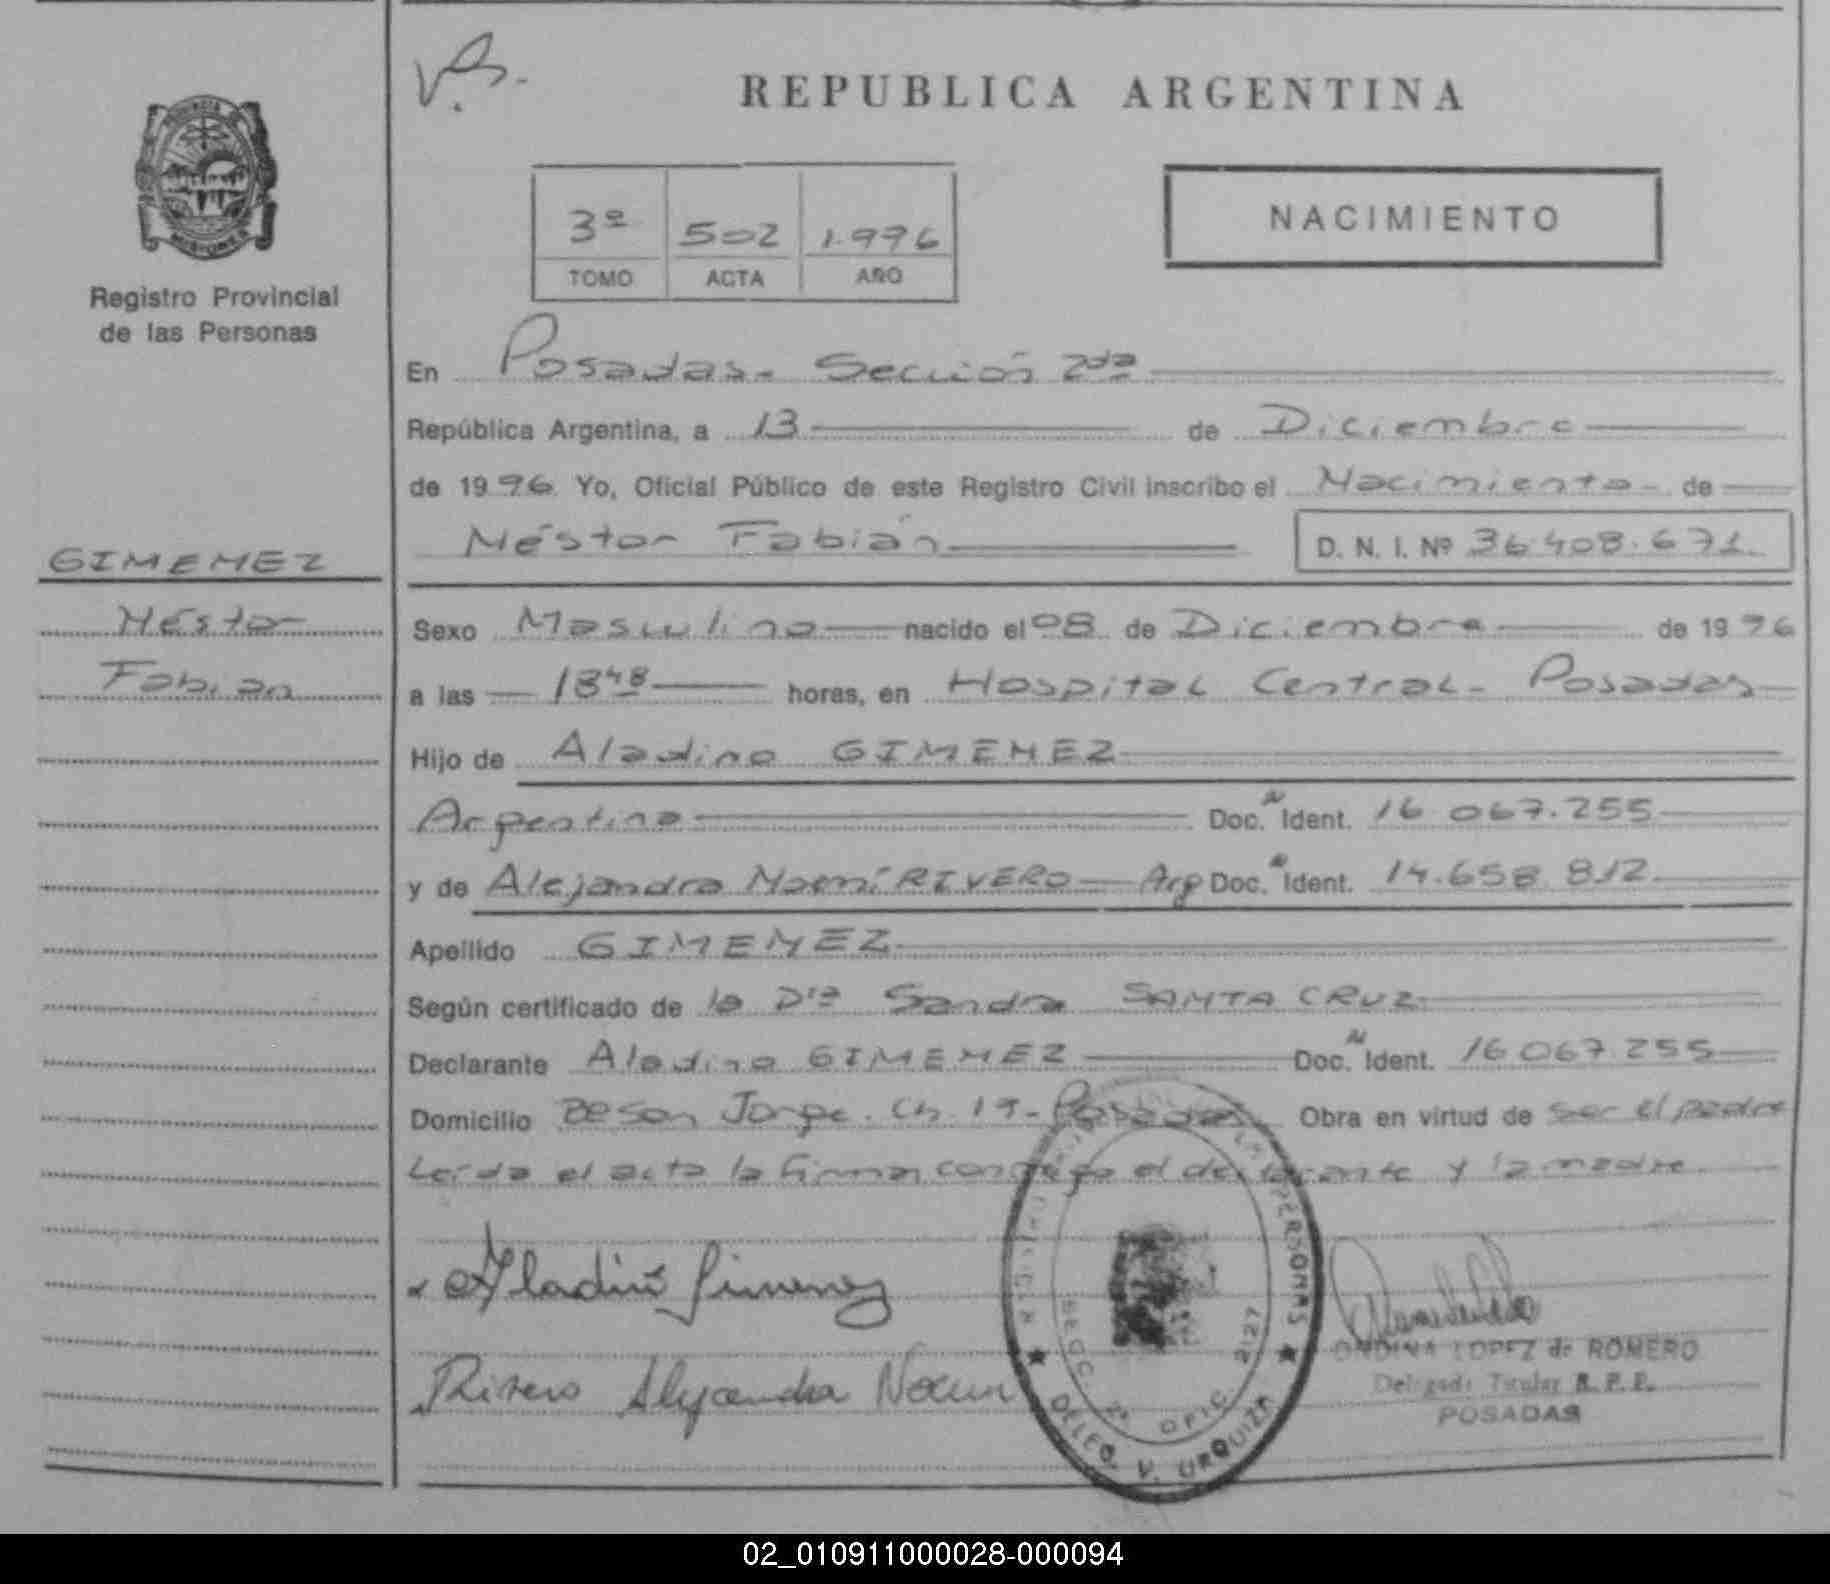 REPUBLICA ARGENTINA
PROVINCIA DE
MISIONES
Registro Provincial
de las Personas
3º 502 1.996
TOMO ACTA AÑO
NACIMIENTO
En Posadas- Sección 2da
República Argentina, a 13 de Diciembre
de 1996 Yo, Oficial Público de este Registro Civil inscribo el Nacimiento de
Néstor Fabián D. N. I. Nº 36.408.671
GIMENEZ
Néstor
Fabian
Sexo Masculino nacido el 08 de Diciembre de 1996
a las 18 48 horas, en Hospital Central- Posadas
Hijo de Aladino GIMENEZ
Argentina Doc. N Ident. 16.067.255
y de Alejandra Noemí RIVERO Arg Doc. N Ident. 14.658.812
Apellido GIMENEZ
Según certificado de la Dra Sandra SANTA CRUZ
Declarante Aladino GIMENEZ Doc. N Ident. 16.067.255
Domicilio Jorge. Ch. 19- Posadas Obra en virtud de ser el padre
Leída el acta la firman conmigo el declarante y la madre
Aladin Jimenez
Rivero Alejandra Noemi
PERSONAS
SECC. 2ª OFIC. 2127
DELEG. V. URQUIZA
ONDINA LOPEZ de ROMERO
Delegada Titular R. P. P.
POSADAS
02_010911000028-000094